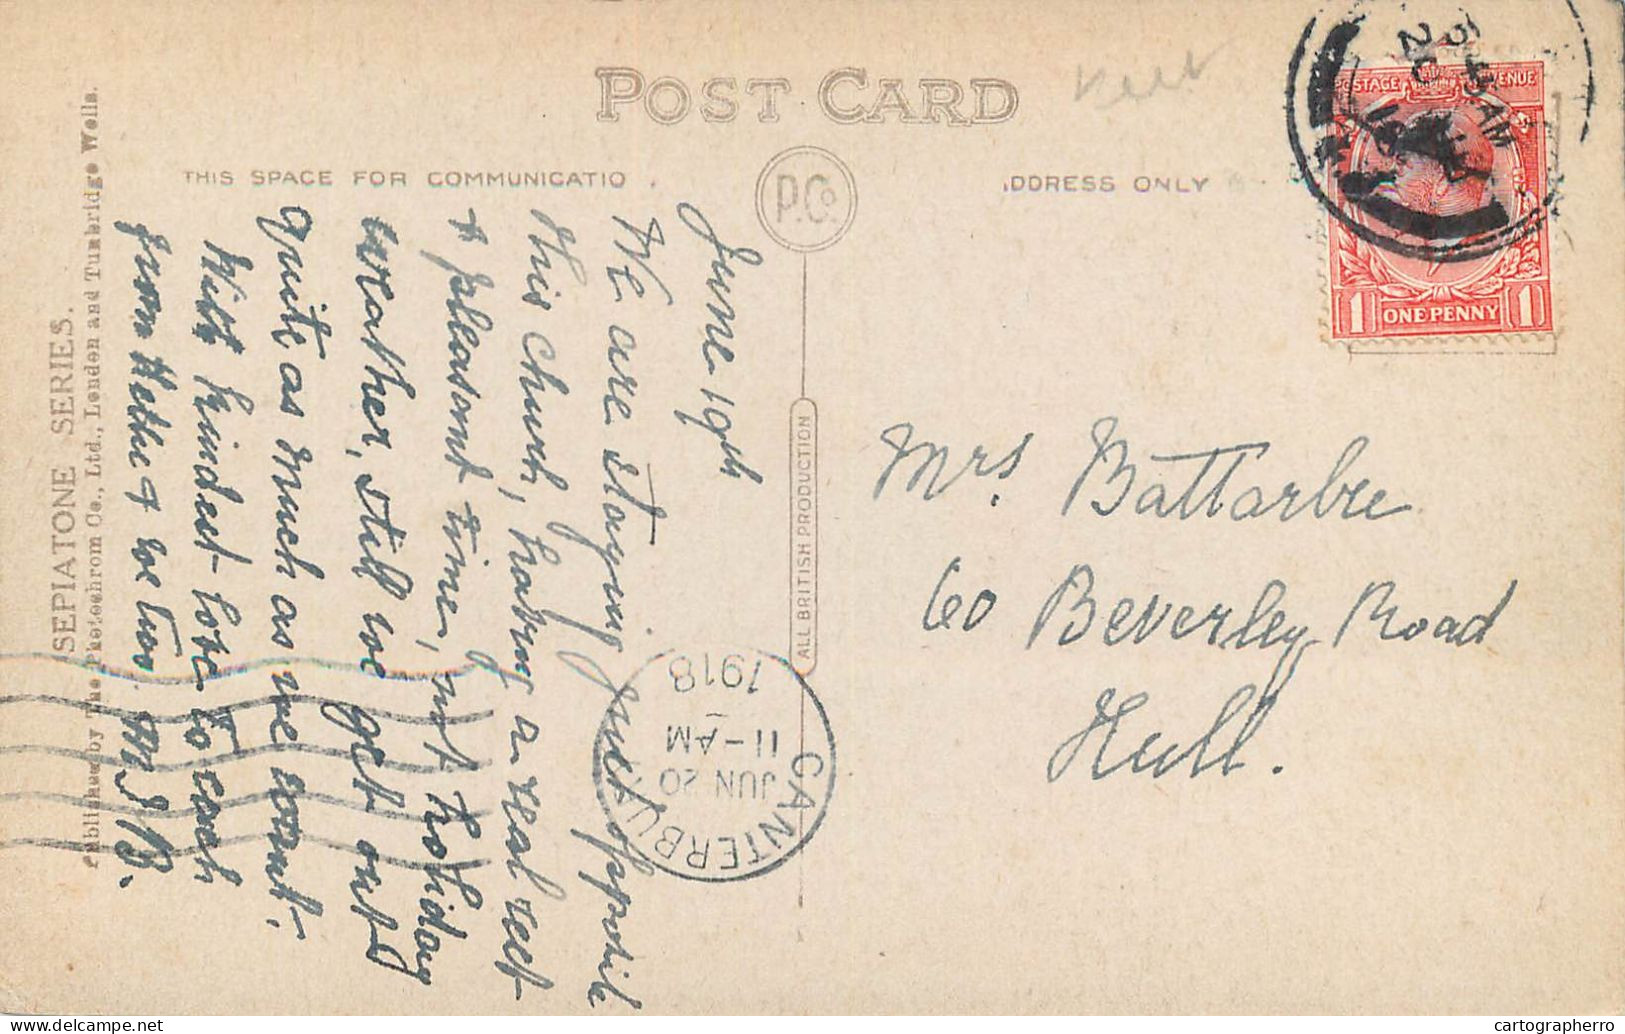 POST CARD
Kent
THIS SPACE FOR COMMUNICATIO
DDRESS ONLY
P.Co.
POSTAGE
ENUE
1 ONE PENNY 1
June 19th
We are staying just opposite
this church, having a real rest
& pleasant time, not holiday
weather, still we get out
quite as much as we want.
With kindest love to each
from Nellie & we two M J B.
Mrs. Battarbee
60 Beverley Road
Hull.
CANTERBURY
JUN 20
11-AM
1918
ALL BRITISH PRODUCTION
SEPIATONE SERIES.
Published by The Photochrom Co., Ltd., London and Tunbridge Wells.
cartographerro
delcampe.net